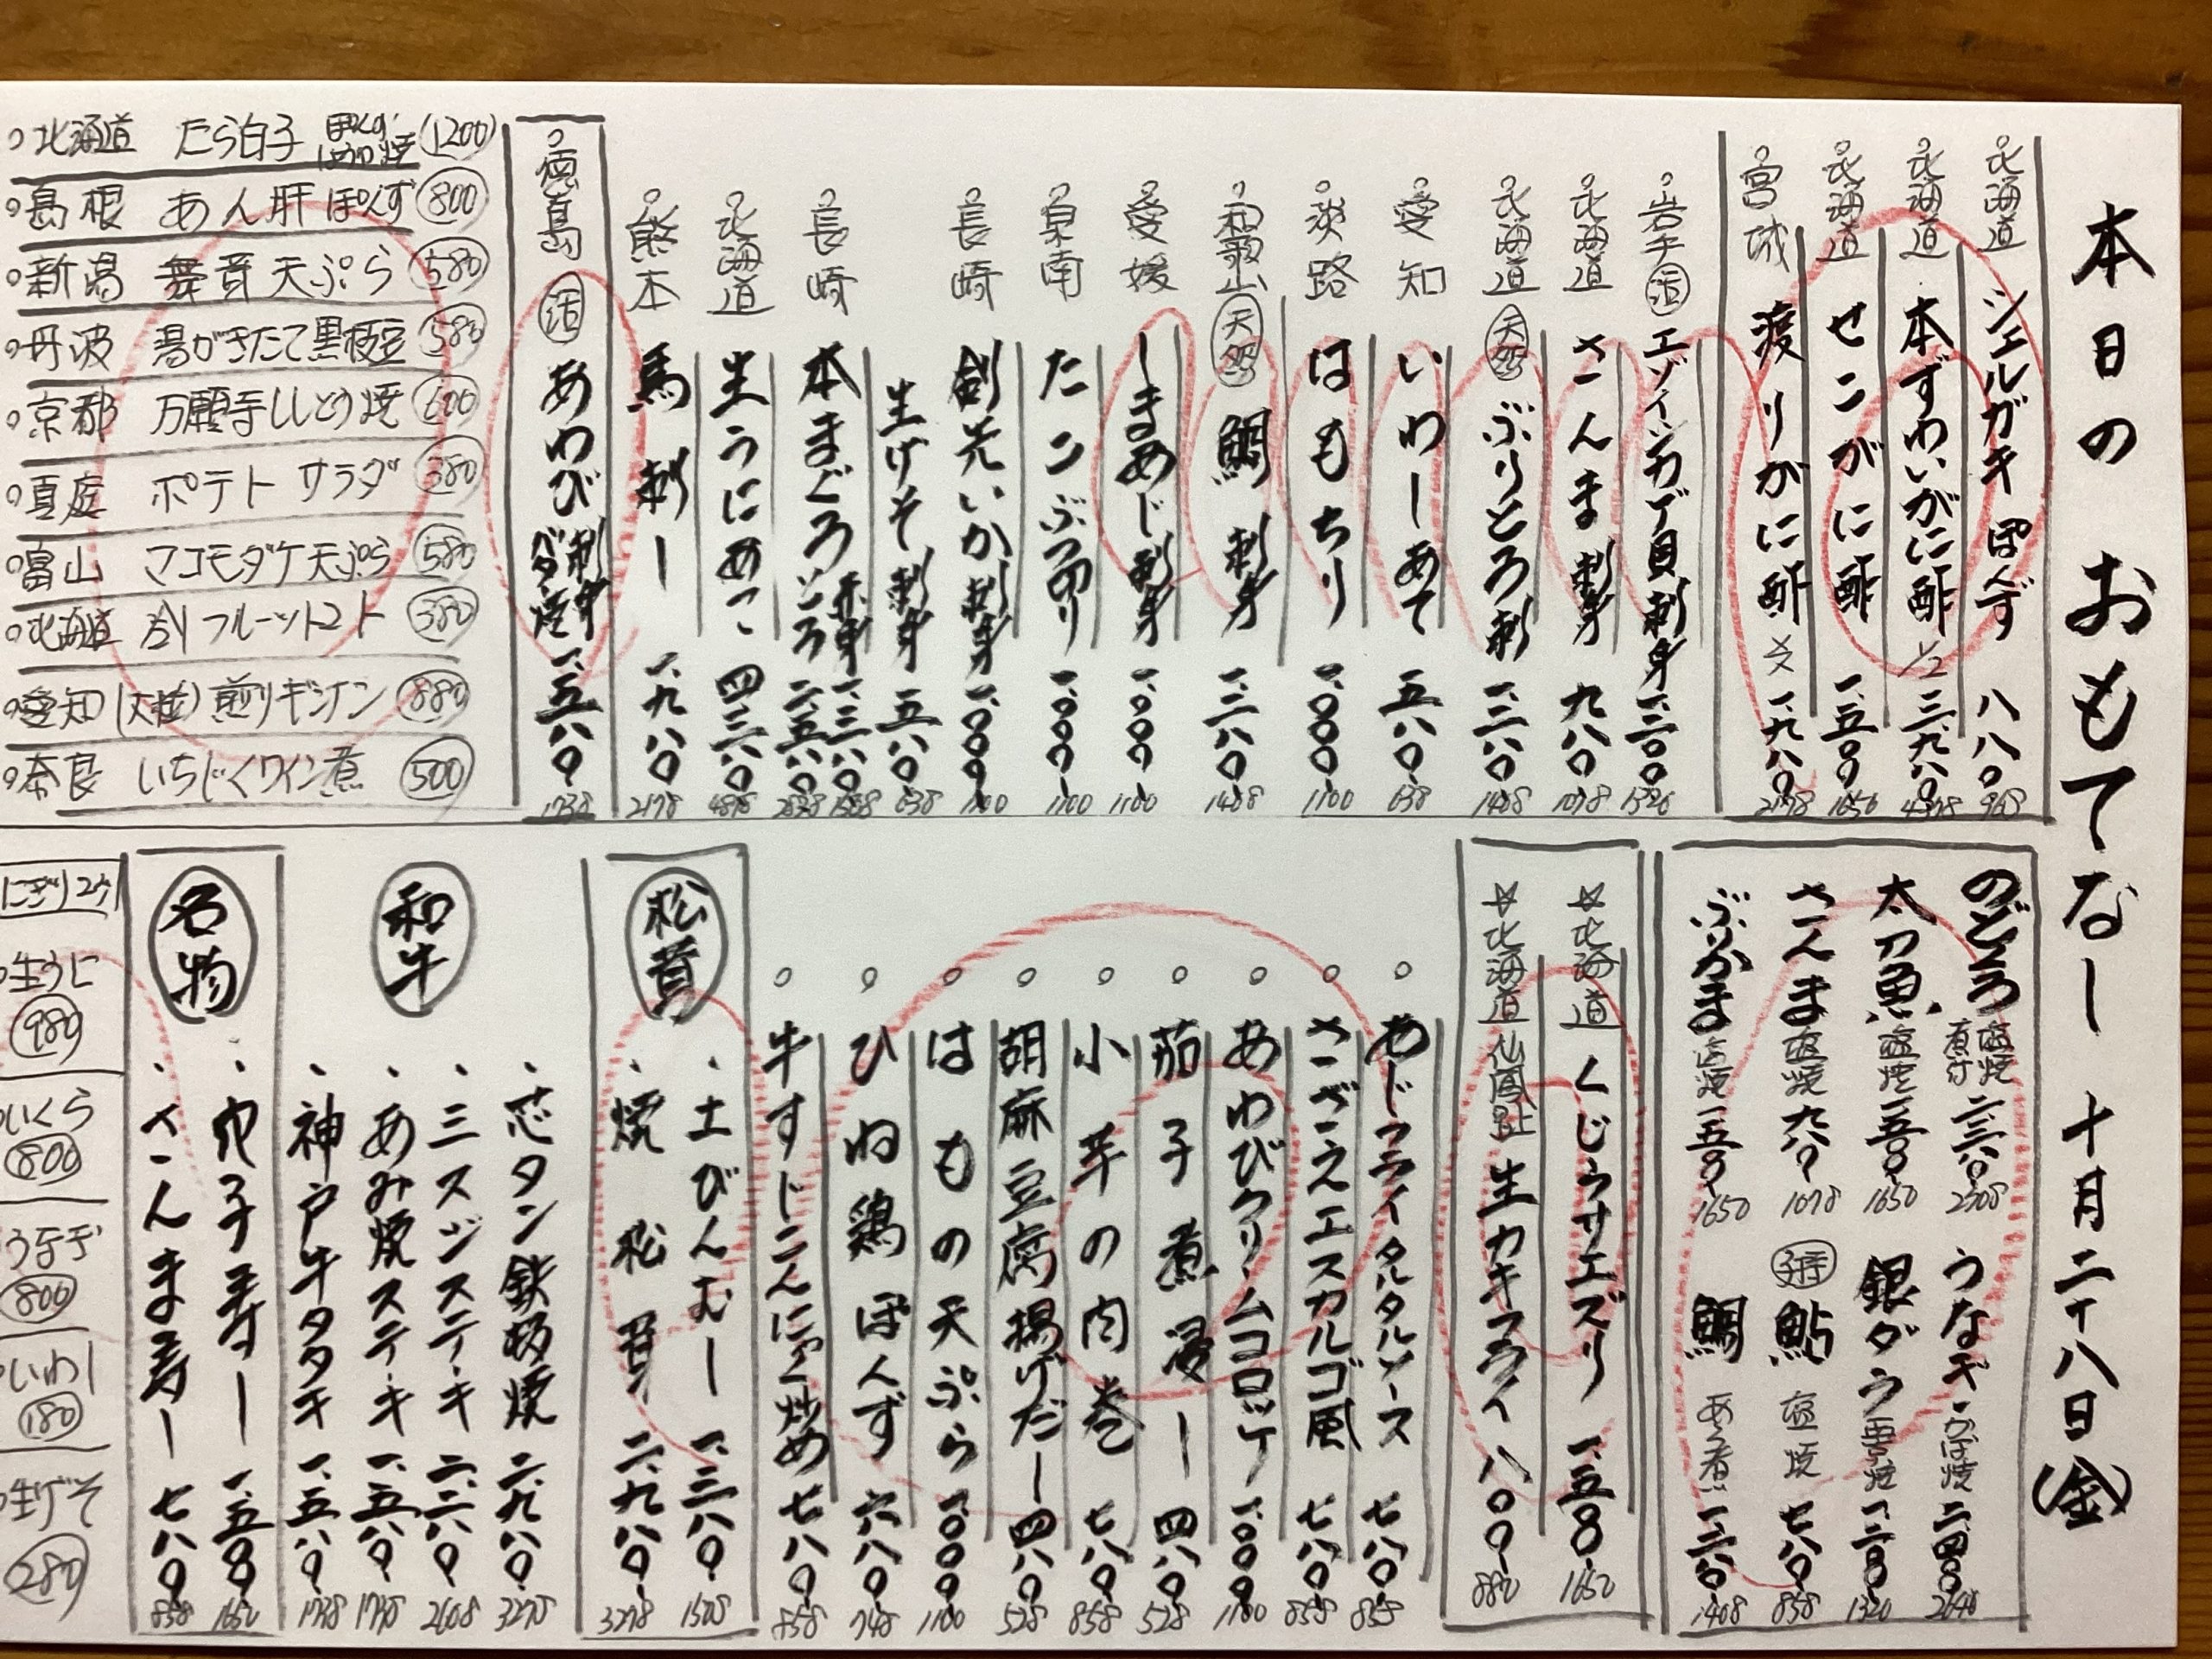 本日の おもてなし 十月二十八日(金)
北海道 シェルガキ ぽんず 八八〇 968
北海道 本ずわいがに酢 1/2 三、九八〇 4378
北海道 せこがに酢 一、五〇〇 1650
宮城 渡りがに酢 一、九八〇 2178
岩手 活 エゾイシカゲ貝刺身 一、二〇〇 1320
北海道 さんま刺身 九八〇 1078
北海道 天然 ぶりとろ刺 一、二八〇 1408
愛知 いわしあて 五八〇 638
淡路 はもちり 一、〇〇〇 1100
和歌山 天然 鯛 刺身 一、二八〇 1408
愛媛 しまあじ刺身 一、〇〇〇 1100
泉南 たこぶつ切り 一、〇〇〇 1100
長崎 剣先いか刺身 一、〇〇〇 1100
生げそ刺身 五八〇 638
長崎 本まぐろ 赤身 一、三八〇
とろ 二、五八〇 2838
北海道 生うにあて 四、三八〇
熊本 馬刺し 一、九八〇 2178
徳島 活 あわび 刺身 バター焼 一、五八〇 1738
北海道 たら白子 ぽんず (1200)
島根 あん肝 ぽんず 800
新潟 舞茸天ぷら 580
丹波 湯がきたて黒枝豆 580
京都 万願寺ししとう焼 600
真庭 ポテトサラダ 380
富山 マコモダケ天ぷら 580
北海道 冷フルーツトマト 380
愛知 (大粒) 煎りギンナン 880
奈良 いちじくワイン煮 500
のどぐろ 塩焼 煮付
太刀魚 塩焼 一、五〇〇 1650
さんま 塩焼 九八〇 1078
ぶりかま 塩焼 一、五〇〇 1650
うなぎ かば焼 二、四〇〇 2640
銀ダラ 西京焼 一、二〇〇 1320
子持 鮎 塩焼 七八〇 858
鯛 あら煮 一、二八〇 1408
☆北海道 くじらサエズリ 一、五〇〇 1650
☆北海道 仙鳳趾 生カキフライ 八〇〇 880
あじフライタルタルソース 七八〇 858
さざえエスカルゴ風 七八〇 858
あわびクリームコロッケ 一、〇〇〇 1100
茄子煮浸し 四八〇 528
小芋の肉巻 七八〇 858
胡麻豆腐揚げだし 四八〇 528
はもの天ぷら 一、〇〇〇 1100
ひね鶏ぽんず 六八〇 748
牛すじこんにゃく炒め 七八〇 858
松茸
土びんむし 一、三八〇
焼松茸 二、九八〇 3278
和牛
芯タン鉄板焼 二、九八〇 3278
三スジステーキ
あみ焼ステーキ 一、五八〇 1738
神戸牛タタキ 一、五八〇 1738
名物
穴子寿し 一、五〇〇 1650
さんま寿し 七八〇 858
にぎり2ケ
生うに 980
いくら 800
うなぎ 800
いわし 180
生げそ 280